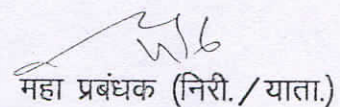 महा प्रबंधक (निरी./याता.)